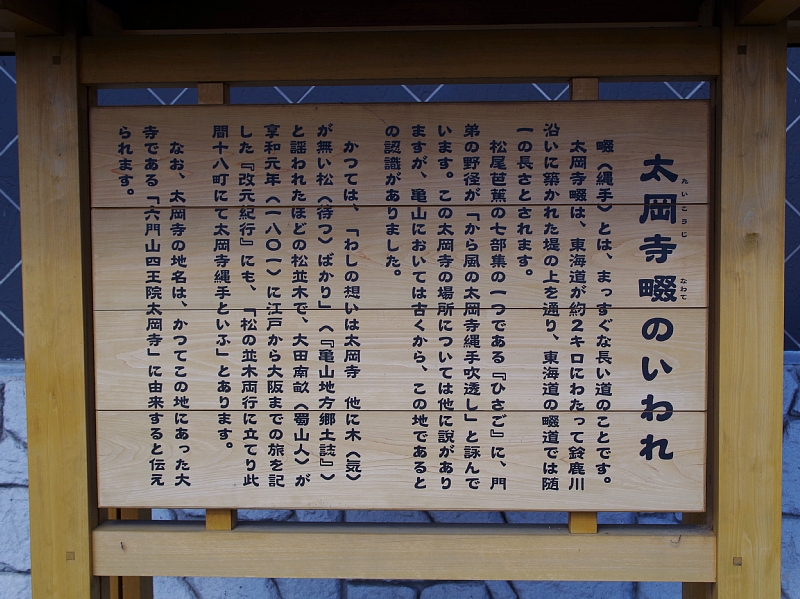 太岡寺畷のいわれ
たいこうじ なわて
畷（縄手）とは、まっすぐな長い道のことです。
太岡寺畷は、東海道が約2キロにわたって鈴鹿川
沿いに築かれた堤の上を通り、東海道の畷道では随
一の長さとされます。
松尾芭蕉の七部集の一つである『ひさご』に、門
弟の野径が「から風の太岡寺縄手吹透し」と詠んで
います。この太岡寺の場所については他に説があり
ますが、亀山においては古くから、この地であると
の認識がありました。
かつては、「わしの想いは太岡寺　他に木（気）
が無い松（待つ）ばかり」（『亀山地方郷土誌』）
と謡われたほどの松並木で、大田南畝（蜀山人）が
享和元年（一八〇一）に江戸から大阪までの旅を記
した『改元紀行』にも、「松の並木両行に立てり此
間十八町にて太岡寺縄手といふ」とあります。
なお、太岡寺の地名は、かつてこの地にあった大
寺である「六門山四王院太岡寺」に由来すると伝え
られます。